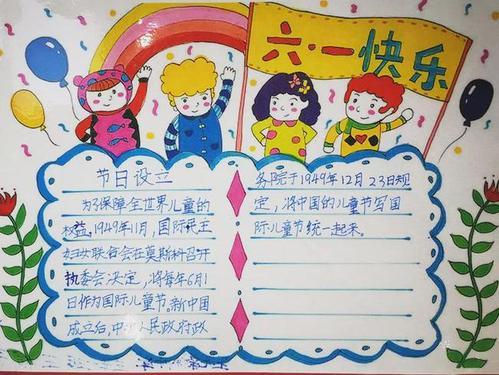 六·一快乐
节日设立
为了保障全世界儿童的
权益,1949年11月,国际民主
妇女联合会在莫斯科召开
执委会决定,将每年6月1
日作为国际儿童节,新中国
成立后,中人民政府政
务院于1949年12月23日规
定,将中国的儿童节写国
际儿童节统一起来。